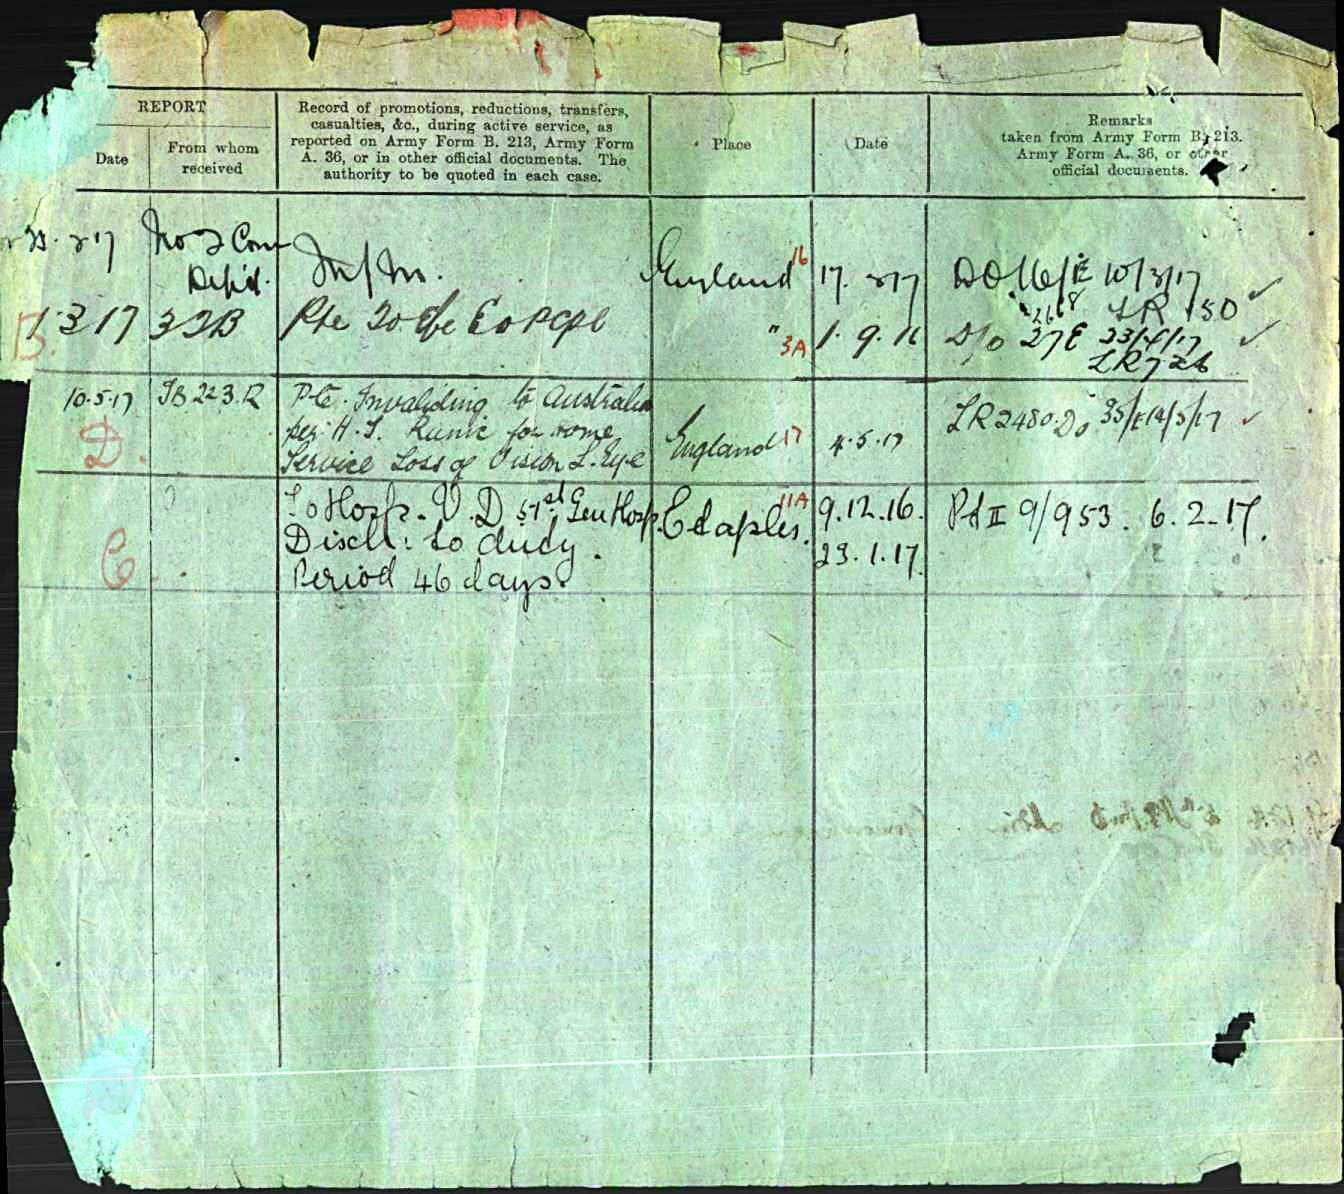 REPORT
Date
From whom
received
Record of promotions, reductions, transfers,
casualties, &c., during active service, as
reported on Army Form B. 213, Army Form
A. 36, or in other official documents. The
authority to be quoted in each case.
Place
Date
Remarks
taken from Army Form B. 213.
Army Form A. 36, or other
official documents.
No 2 Com
Depôt. M/In. England 16 17. 2 17 DO /16/E 10/3/17
LR 150
B. 1 3 17 Pte to be E D P Cpl " 3A 1. 9. 16 D/o 27E 23/4/17
LR 726
10.5.17 Pte. Invaliding to Australia LR 2480. Do 35/E 14/5/17
D. per H.S. Runic for home England 17 4.5.17
Service Loss of Vision L. Eye
To Hosp. V.D 51st Gen Hosp. Etaples. 11A 9.12.16. Pt II 9/953. 6.2.17.
C. Disch: to duty. 23.1.17.
Period 46 days.